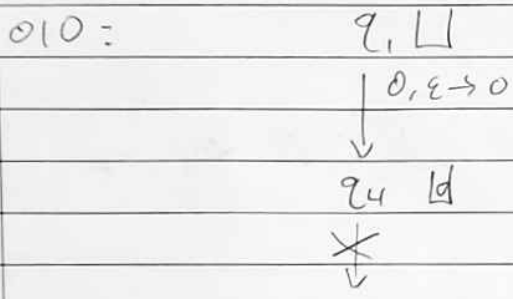 010: q₁ ⊔
0, ε → 0
q₄ ⊔0